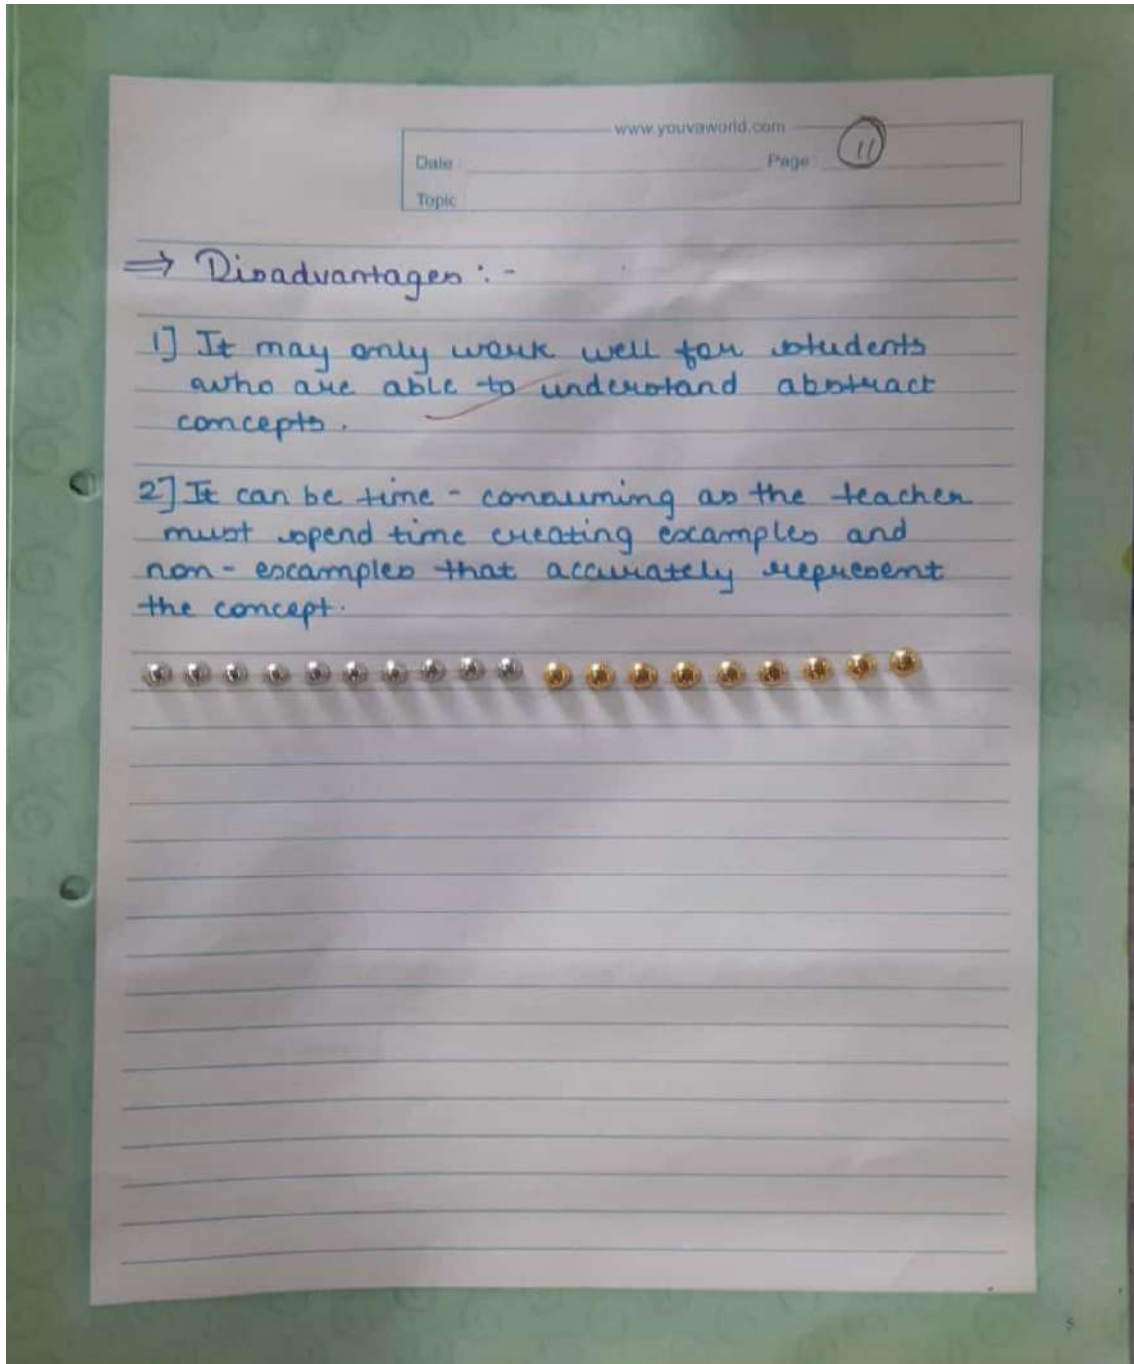 www.youvaworld.com
Date Page 11
Topic
⇒ Disadvantages :-
1] It may only work well for students
who are able to understand abstract
concepts.
2] It can be time - consuming as the teacher
must spend time creating examples and
non - examples that accurately represent
the concept.
5